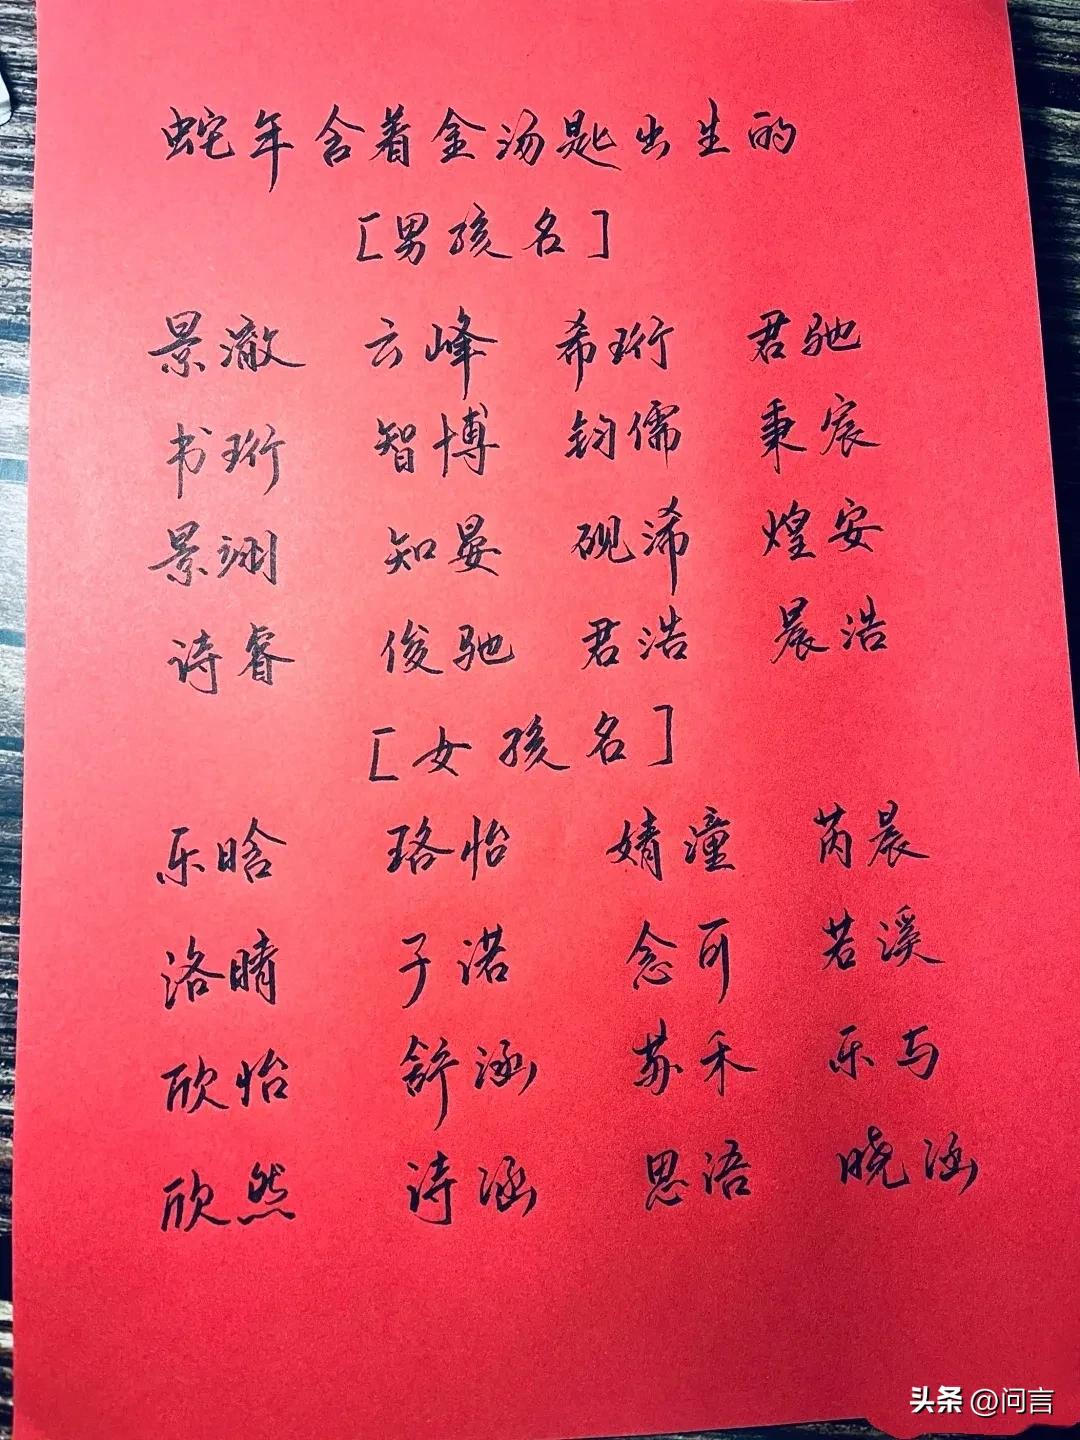 蛇年含着金汤匙出生的
[男孩名]
景澈 云峰 希珩 君驰
书珩 智博 钧儒 秉宸
景翊 知晏 砚浠 煌安
诗睿 俊驰 君浩 晨浩
[女孩名]
乐晗 珞怡 婧潼 芮晨
洛晴 子诺 念可 若溪
欣怡 舒涵 苏禾 乐与
欣然 诗涵 思语 晓涵
头条 @问言